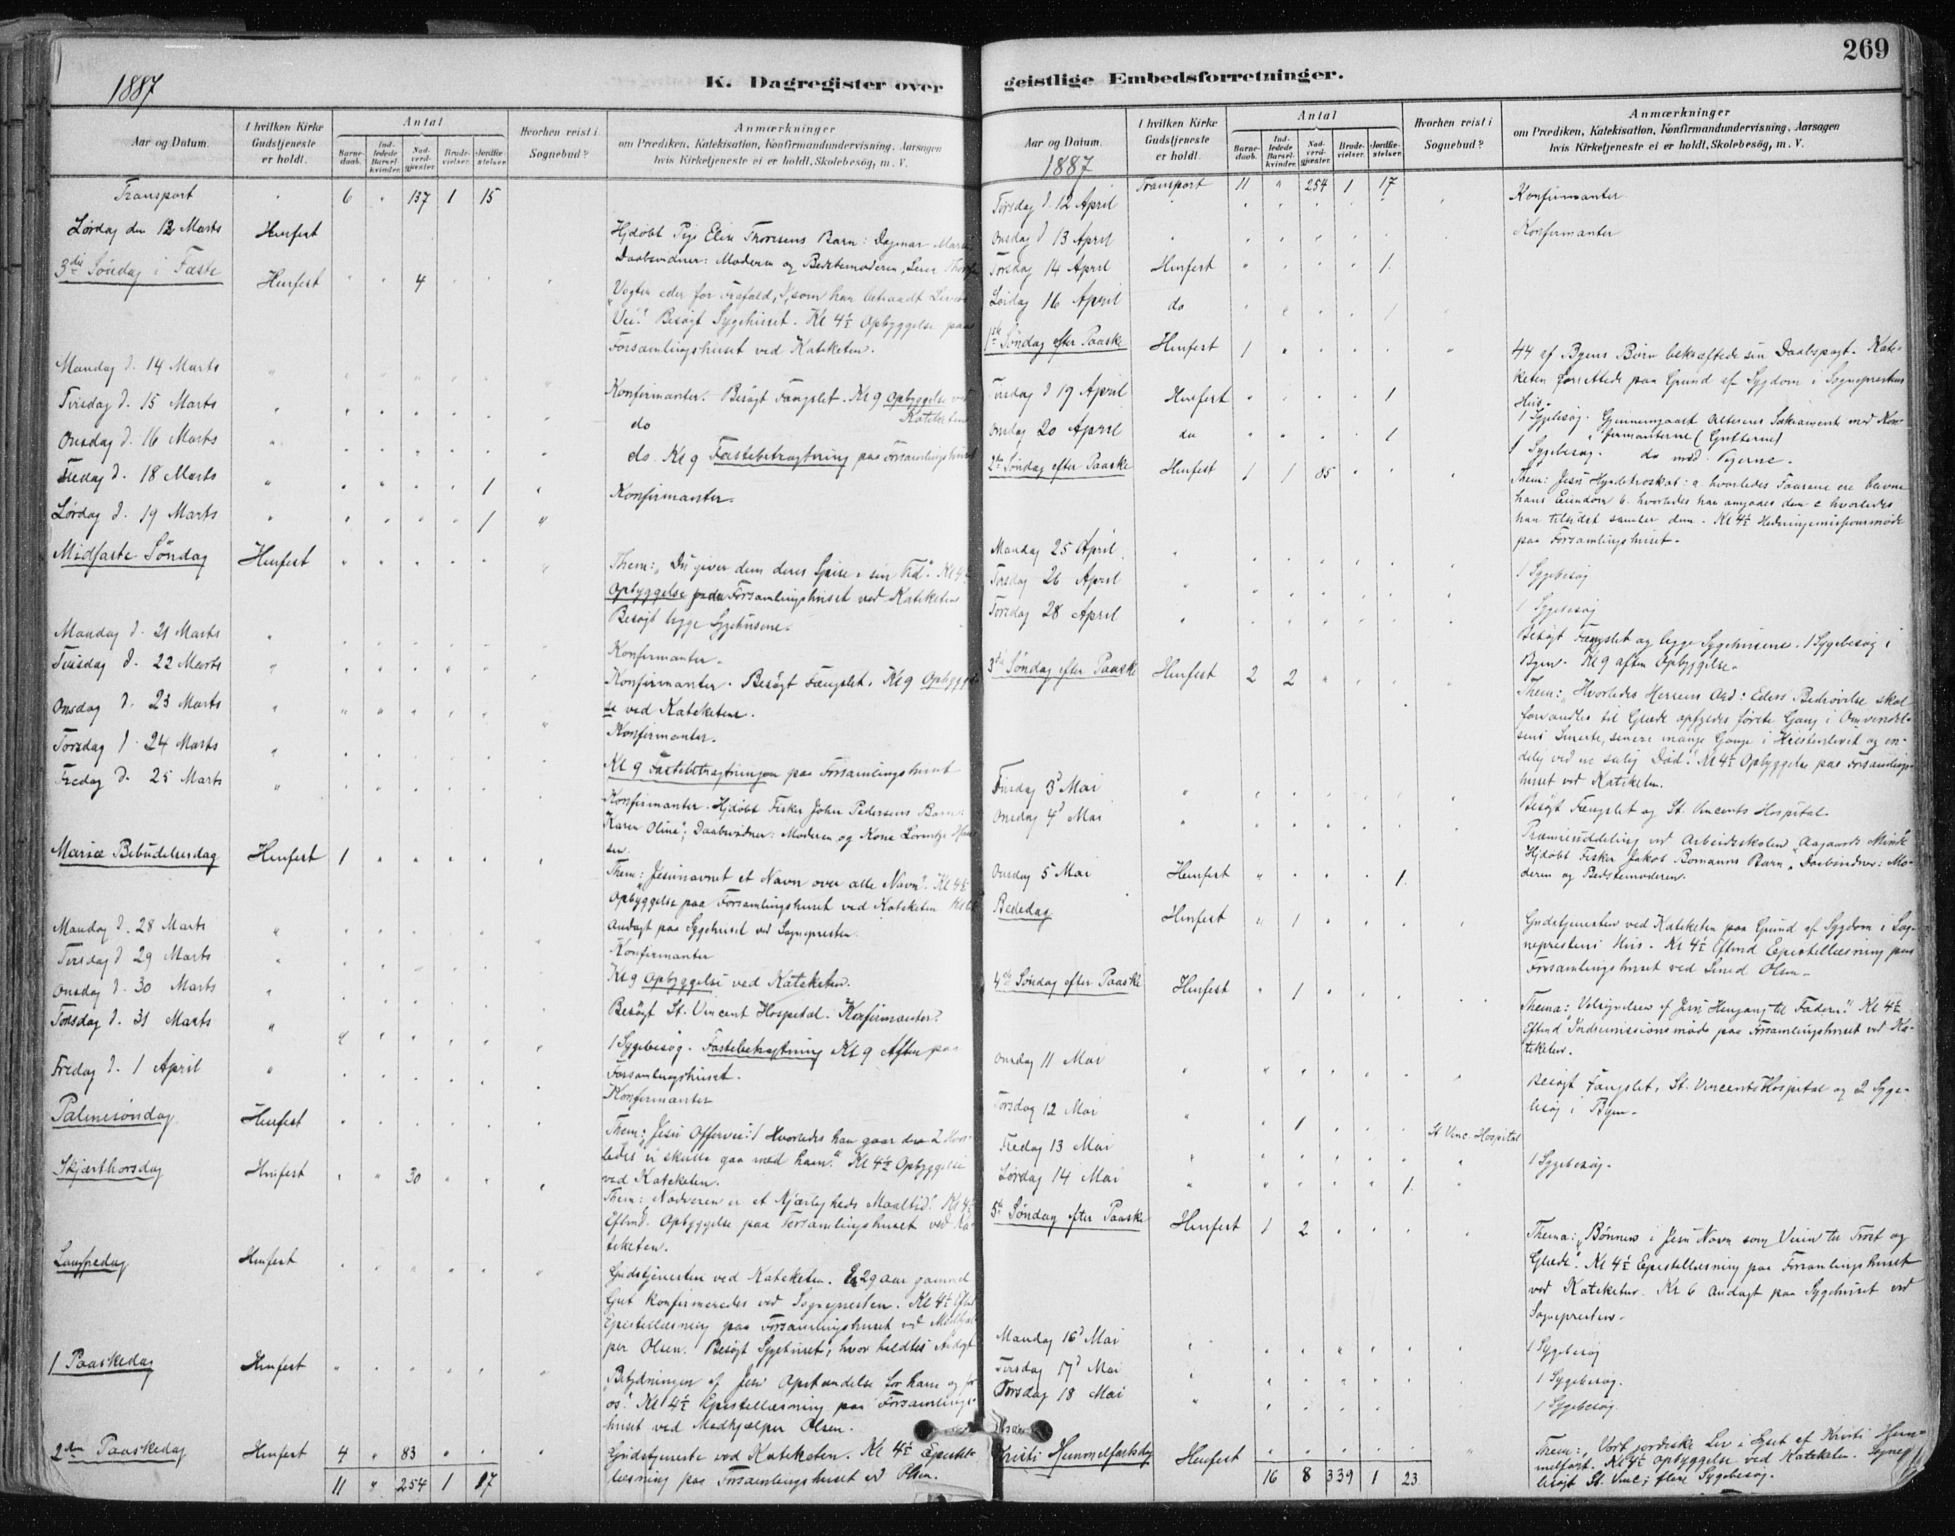 1887
K. Dagregister over
Aar og Datum.
I hvilken Kirke Gudstjeneste er holdt.
Antal
Barne-daab.
Ind-ledede Barsel-kvinder.
Nad-verd-gjæster.
Brude-vielser.
Jordfæ-stelser.
Hvorhen reist i Sognebud?
Anmærkninger
om Prædiken, Katekisation, Konfirmandundervisning, Aarsagen
hvis Kirketjeneste ei er holdt, Skolebesøg, m. V.
Transport " 6 " 137 1 15
Lørdag den 12 Marts Hmfest
Hjdøbt Pige Elise Thoresens Barn: Dagmar
Daabvidner: Moderen og Bedstemoderen,
3die Søndag i Faste Hmfest 4
"Vogter eder for Frafald, I, som har betraadt Livets
Vei." Besøgt Sygehuset. Kl 4½ Opbyggelse paa
Forsamlingshuset ved Kateketen.
Mandag d. 14 Marts
Konfirmanter. Besøgt Fængslet. Kl 9 Opbyggelse ved
Kateketen
Tirsdag d. 15 Marts
do
Onsdag d. 16 Marts
do. Kl 9 Fastebetragtning paa Forsamlingshuset
Fredag d. 18 Marts 1
Konfirmanter.
Lørdag d. 19 Marts 1
Midfaste Søndag Hmfest
Them: "Du giver dem deres Spise i sin Tid". Kl 4½
Opbyggelse paa Forsamlingshuset ved Kateketen
Besøgt begge Sygehusene.
Mandag d. 21 Marts
Konfirmanter.
Tirsdag d. 22 Marts
Konfirmanter. Besøgt Fængslet. Kl 9 Opbyggel-
se ved Kateketen.
Onsdag d. 23 Marts
Konfirmanter.
Torsdag d. 24 Marts
Kl 9 Fastebetragtningen paa Forsamlingshuset
Fredag d. 25 Marts
Konfirmanter. Hjdøbt Fisker John Pedersens Barn:
Karen Oline; Daabvidner: Moderen og Kone
Mariæ Bebudelsesdag Hmfest 1
Them: "Jesunavnet et Navn over alle Navn". Kl 4½
Opbyggelse paa Forsamlingshuset ved Kateketen
Andagt paa Sygehuset ved Sognepresten.
Mandag d. 28 Marts
Konfirmanter
Tirsdag d 29 Marts
Kl 9 Opbyggelse ved Kateketen.
Onsdag d. 30 Marts
Besøgt St. Vincent Hospital. Konfirmanter.
Torsdag d. 31 Marts
1 Sygebesøg. Fastebetragtning Kl 9 Aften paa
Forsamlingshuset.
Fredag d. 1 April
Konfirmanter
Palmesøndag Hmfest
Them: "Jesu Offervei: 1 Hvorledes han gaar den 2 Hvor-
ledes vi skulle gaa med ham." Kl 4½ Opbyggelse
ved Kateketen.
Skjærthorsdag Hmfest 30
Them: Nadveren er et Kjærligheds Maaltid. Kl 4½
Eftmd. Opbyggelse paa Forsamlingshuset ved Ka-
teketen.
Langfredag Hmfest
Gudstjenesten ved Kateketen. En 29 aar gammel
Gut konfirmeredes ved Sognepresten. Kl 4½ Eftmd
Epistellæsning paa Forsamlingshuset ved Medhjæl-
per Olsen. Besøgt Sygehuset, hvor holdtes Andagt
1 Paaskedag Hmfest
"Betydningen af Jesu Opstandelse for ham og for
os." Kl 4½ Epistellæsning paa Forsamlings-
huset ved Medhjælper Olsen.
2den Paaskedag Hmfest 4 " 83
Gudstjeneste ved Kateketen. Kl 4½ Epistel-
læsning paa Forsamlingshuset ved Olsen.
11 " 254 1 17
269
geistlige Embedsforretninger.
Aar og Datum.
1887
I hvilken Kirke Gudstjeneste er holdt.
Antal
Barne-daab.
Ind-ledede Barsel-kvinder.
Nad-verd-gjæster.
Brude-vielser.
Jordfæ-stelser.
Hvorhen reist i Sognebud?
Anmærkninger
om Prædiken, Katekisation, Konfirmandundervisning, Aarsagen
hvis Kirketjeneste ei er holdt, Skolebesøg, m. V.
Transport 11 " 254 1 17
Tirsdag d. 12 April
Konfirmanter
Onsdag d 13 April
Konfirmanter
Torsdag 14 April Hmfest 1
Lørdag 16 April do 1
1ste Søndag efter Paaske Hmfest 1
44 af Byens Børn bekræftede sin Daabspagt. Kate-
keten forrettede paa Grund af Sygdom i Sogneprestens
Hus.
Tirsdag d 19 April Hmfest 1
1 Sygebesøg. Gjennemgaaet Alterens Sakramente med Kon-
firmanterne (Gutterne)
Onsdag 20 April do 1
1 Sygebesøg. do med Pigerne.
2den Søndag efter Paaske Hmfest 1 1 85
Them: Jesu Hyrdetroskab: a. hvorledes Faarene ere bievne
hans Eiendom b. hvorledes han dem c hvorledes
han tilsidst samler dem. Kl 4½ Hedningemissionsmøde
paa Forsamlingshuset.
Mandag 25 April
1 Sygebesøg
Tirsdag 26 April
1 Sygebesøg
Torsdag 28 April
Besøgt Fængslet og begge Sygehusene. 1 Sygebesøg i
Byen. Kl 9 aften Opbyggelse.
3die Søndag efter Paaske Hmfest 2 2
Them: "Hvorledes Herrens Ord: Eders Bedrøvelse skal
forvandles til Glæde opfyldes første Gang i Omvendel-
sens Smerte, senere mange Gange i Kristenlivet og en-
delig ved en salig Død". Kl 4½ Opbyggelse paa Forsamlings-
huset ved Kateketen.
Tirsdag 3d Mai
Besøgt Fængslet og St. Vincents Hospital.
Onsdag 4d Mai
Præmieuddeling ved Arbeidsskolen "Aagaards Minde"
Hjdøbt Fisker Jakob Bomanns Barn, Daabvidner: Mo-
deren og Bedstemoderen.
Onsdag 5 Mai Hmfest 1
Bededag Hmfest 1
Gudstjenesten ved Kateketen paa Grund af Sygdom i Sog-
neprestens Hus. Kl 4½ Eftmd Epistellæsning paa
Forsamlingshuset ved Olsen.
4de Søndag efter Paaske Hmfest 1
Thema: "Velsignelsen af Jesu Hengang til Faderen." Kl 4½
Eftmd Indremissionsmøde paa Forsamlingshuset ved Ka-
teketen.
Onsdag 11 Mai
Besøgt Fængslet, St. Vincents Hospital og 2 Syge-
besøg i Byen.
Torsdag 12 Mai 1 St Vinc. Hospital
Fredag 13 Mai
1 Sygebesøg.
Lørdag 14 Mai 1
5te Søndag efter Paaske Hmfest 1 2
Thema: "Bønnen i Jesu Navn som Veien til Trøst og
Glæde". Kl 4½ Epistellæsning paa Forsamlingshuset
ved Kateketen. Kl 6 Andagt paa Sygehuset ved
Sognepresten.
Mandag 16d Mai
1 Sygebesøg
Tirsdag 17d Mai
1 Sygebesøg.
Torsdag 18 Mai
1 Sygebesøg
Kristi Himmelfartsdag Hmfest
Them: "Vort jordiske Liv i Lyset af Kristi Him-
melfart. Kl 4½ Opbyggelse ved Kateketen. Sognep
besøgt St. Vinc; flere Sygebesøg.
16 8 339 1 23